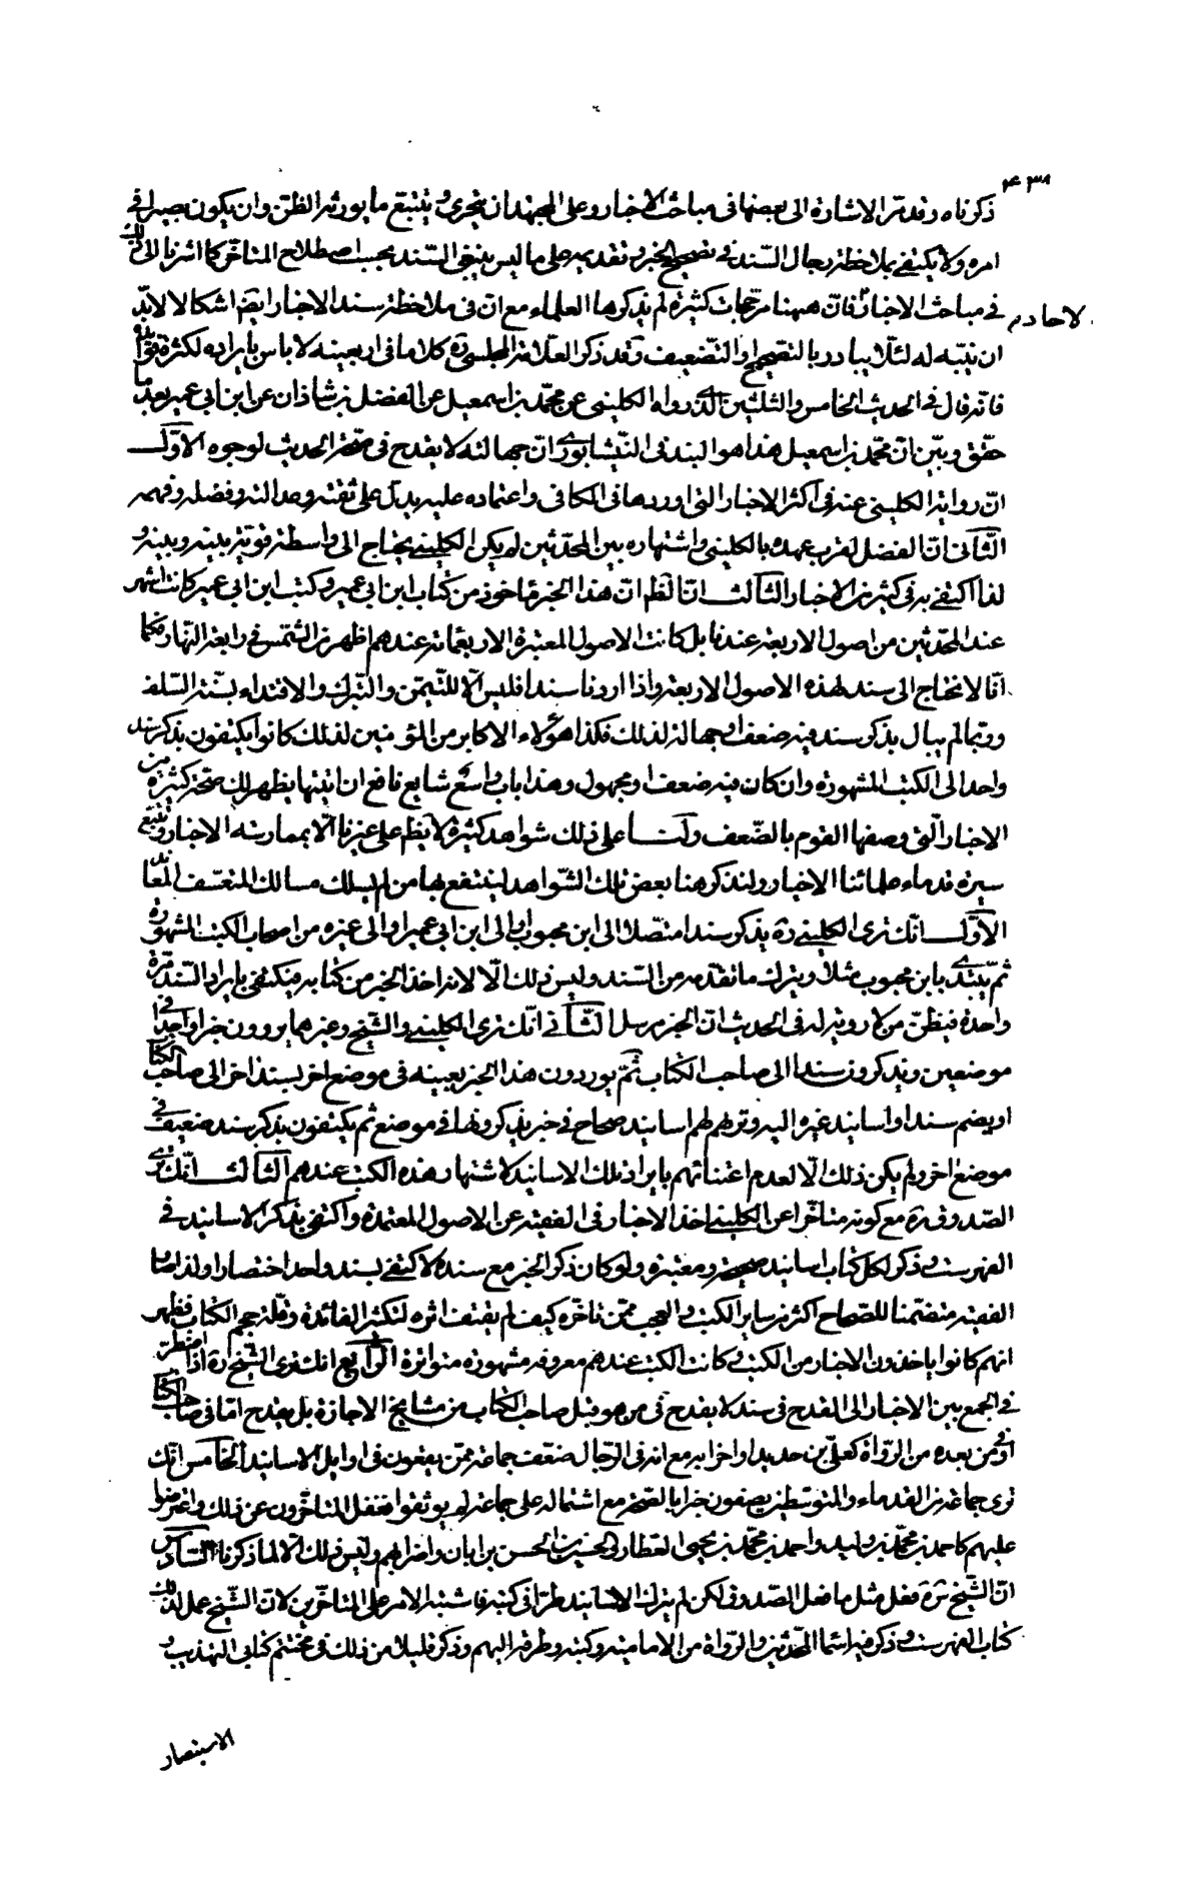 ٤٣٨
ذكرناه وقد مر الاشارة الى بعضها فى مباحث الاخبار وعلى المجتهد ان يتحرى ويتتبع ما يورث الظن وان يكون بصيرا فى
امره ولا يكتفى بملاحظة رجال السند فى تصحيح الخبر وتقديمه على ما ليس بنقى السند بحسب اصطلاح المتاخر كما اشرنا الى ذلك
فى مباحث الاخبار فان ههنا مرجحات كثيرة لم يذكرها العلماء مع ان فى ملاحظة سند الاخبار ايضا اشكالا لا بد
لاحاد م
ان ننبه له لئلا يبادر بالتصحيح او التضعيف وقد ذكر العلامة المجلسى ره كلاما فى اربعينه لا باس بايراده لكثرة فوائده
فانه قال فى الحديث الخامس والثلثين الذى رواه الكلينى عن محمد بن اسمعيل عن الفضل بن شاذان عن ابن ابى عمير بعد ما
حقق وبين ان محمد بن اسمعيل هذا هو البندقى النيشابورى ان جهالته لا يقدح فى صحة الحديث لوجوه الاول
ان رواية الكلينى عنه فى اكثر الاخبار التى اوردها فى الكافى واعتماده عليه يدل على ثقته وعدالته وفضله وفهمه
الثانى ان الفضل لقرب عهده بالكلينى واشتهاره بين المحدثين لم يكن الكلينى يحتاج الى واسطة قوية بينه وبينه و
لذا اكتفى به فى كثير من الاخبار الثالث ان الظ ان هذا الخبر ماخوذ من كتاب ابن ابى عمير وكتب ابن ابى عمير كانت اشهر
عند المحدثين من اصول الاربعة عندنا بل كانت الاصول المعتبرة الاربعمائة عندهم اظهر من الشمس فى رابعة النهار فكما
انا لا نحتاج الى سند لهذه الاصول الاربعة واذا اردنا سندا فليس الا للتيمن والتبرك والاقتداء بسنة السلف
وربما لم يبال بذكر سند فيه ضعف او جهالة لذلك فكذا هؤلاء الاكابر من المؤمنين لذلك كانوا يكتفون بذكر سند
واحد الى الكتب المشهورة وان كان فيه ضعف او مجهول وهذا باب واسع شايع نافع ان اتيتها يظهر لك صحة كثيرة من
الاخبار التى وصفها القوم بالضعف ولنا على ذلك شواهد كثيرة لا يظهر على غيرنا الا بممارسة الاخبار وتتبع
سيرة قدماء علمائنا الاخيار ولنذكر هنا بعض تلك الشواهد لينتفع بها من لم يسلك مسالك المتعسف المعاند
الاول انك ترى الكلينى ره يذكر سندا متصلا الى ابن محبوب او الى ابن ابى عمير او الى غيره من اصحاب الكتب المشهورة
ثم يبتدى بابن محبوب مثلا ويترك ما تقدمه من السند وليس ذلك الا لانه اخذ الخبر من كتابه فيكتفى بايراد السند مرة
واحدة فيظن من لا روية له فى الحديث ان الخبر مرسل الثانى انك ترى الكلينى والشيخ وغيرهما يروون خبرا واحدا فى
موضعين ويذكرون سندا الى صاحب الكتاب ثم يوردون هذا الخبر بعينه فى موضع اخر بسند اخر الى صاحب الكتاب
او يضم سندا او اسانيد غيره اليه وتريهم لهم اسانيد صحاح فى خبر يذكرونها فى موضع ثم يكتفون بذكر سند ضعيف فى
موضع اخر ولم يكن ذلك الا لعدم اعتنائهم بايراد تلك الاسانيد لاشتهار هذه الكتب عندهم الثالث انك ترى
الصدوق ره مع كونه متاخرا عن الكلينى اخذ الاخبار فى الفقيه عن الاصول المعتمدة واكتفى بذكر الاسانيد فى
الفهرست وذكر لكل كتاب اسانيد صحيحة ومعتبرة ولو كان ذكر الخبر مع سنده لاكتفى بسند واحد اختصارا ولذا صار
الفقيه متضمنا للصحاح اكثر من ساير الكتب والعجب ممن تاخره كيف لم يقتف اثره لتكثير الفائدة وقلة حجم الكتاب فظهر
انهم كانوا ياخذون الاخبار من الكتب وكانت الكتب عندهم معروفة مشهورة متواترة الرابع انك ترى الشيخ ره اذا اضطر
فى الجمع بين الاخبار الى القدح فى سند لا يقدح فى من هو قبل صاحب الكتاب من مشايخ الاجازة بل يقدح اما فى صاحب الكتاب
او فى من بعده من الرواة كعلى بن حديد واضرابه مع انه فى الرجال ضعف جماعة ممن يقعون فى اوايل الاسانيد الخامس انك
ترى جماعة من القدماء والمتوسطين يصفون خبرا بالصحة مع اشتماله على جماعة لم يوثقوا فغفل المتاخرون عن ذلك واعترضوا
عليهم كاحمد بن محمد بن وليد واحمد بن محمد بن يحيى العطار والحسين بن الحسن بن ابان واضرابهم وليس ذلك الا لما ذكرنا السادس
ان الشيخ قدس سره فعل مثل ما فعل الصدوق لكن لم يترك الاسانيد طرا فى كتبه فاشتبه الامر على المتاخرين لان الشيخ عمل لذلك
كتاب الفهرست وذكر فيه اسماء المحدثين والرواة من الامامية وكتبهم وطرقه اليهم وذكر قليلا من ذلك فى مختتم كتابى التهذيب و
الاستبصار